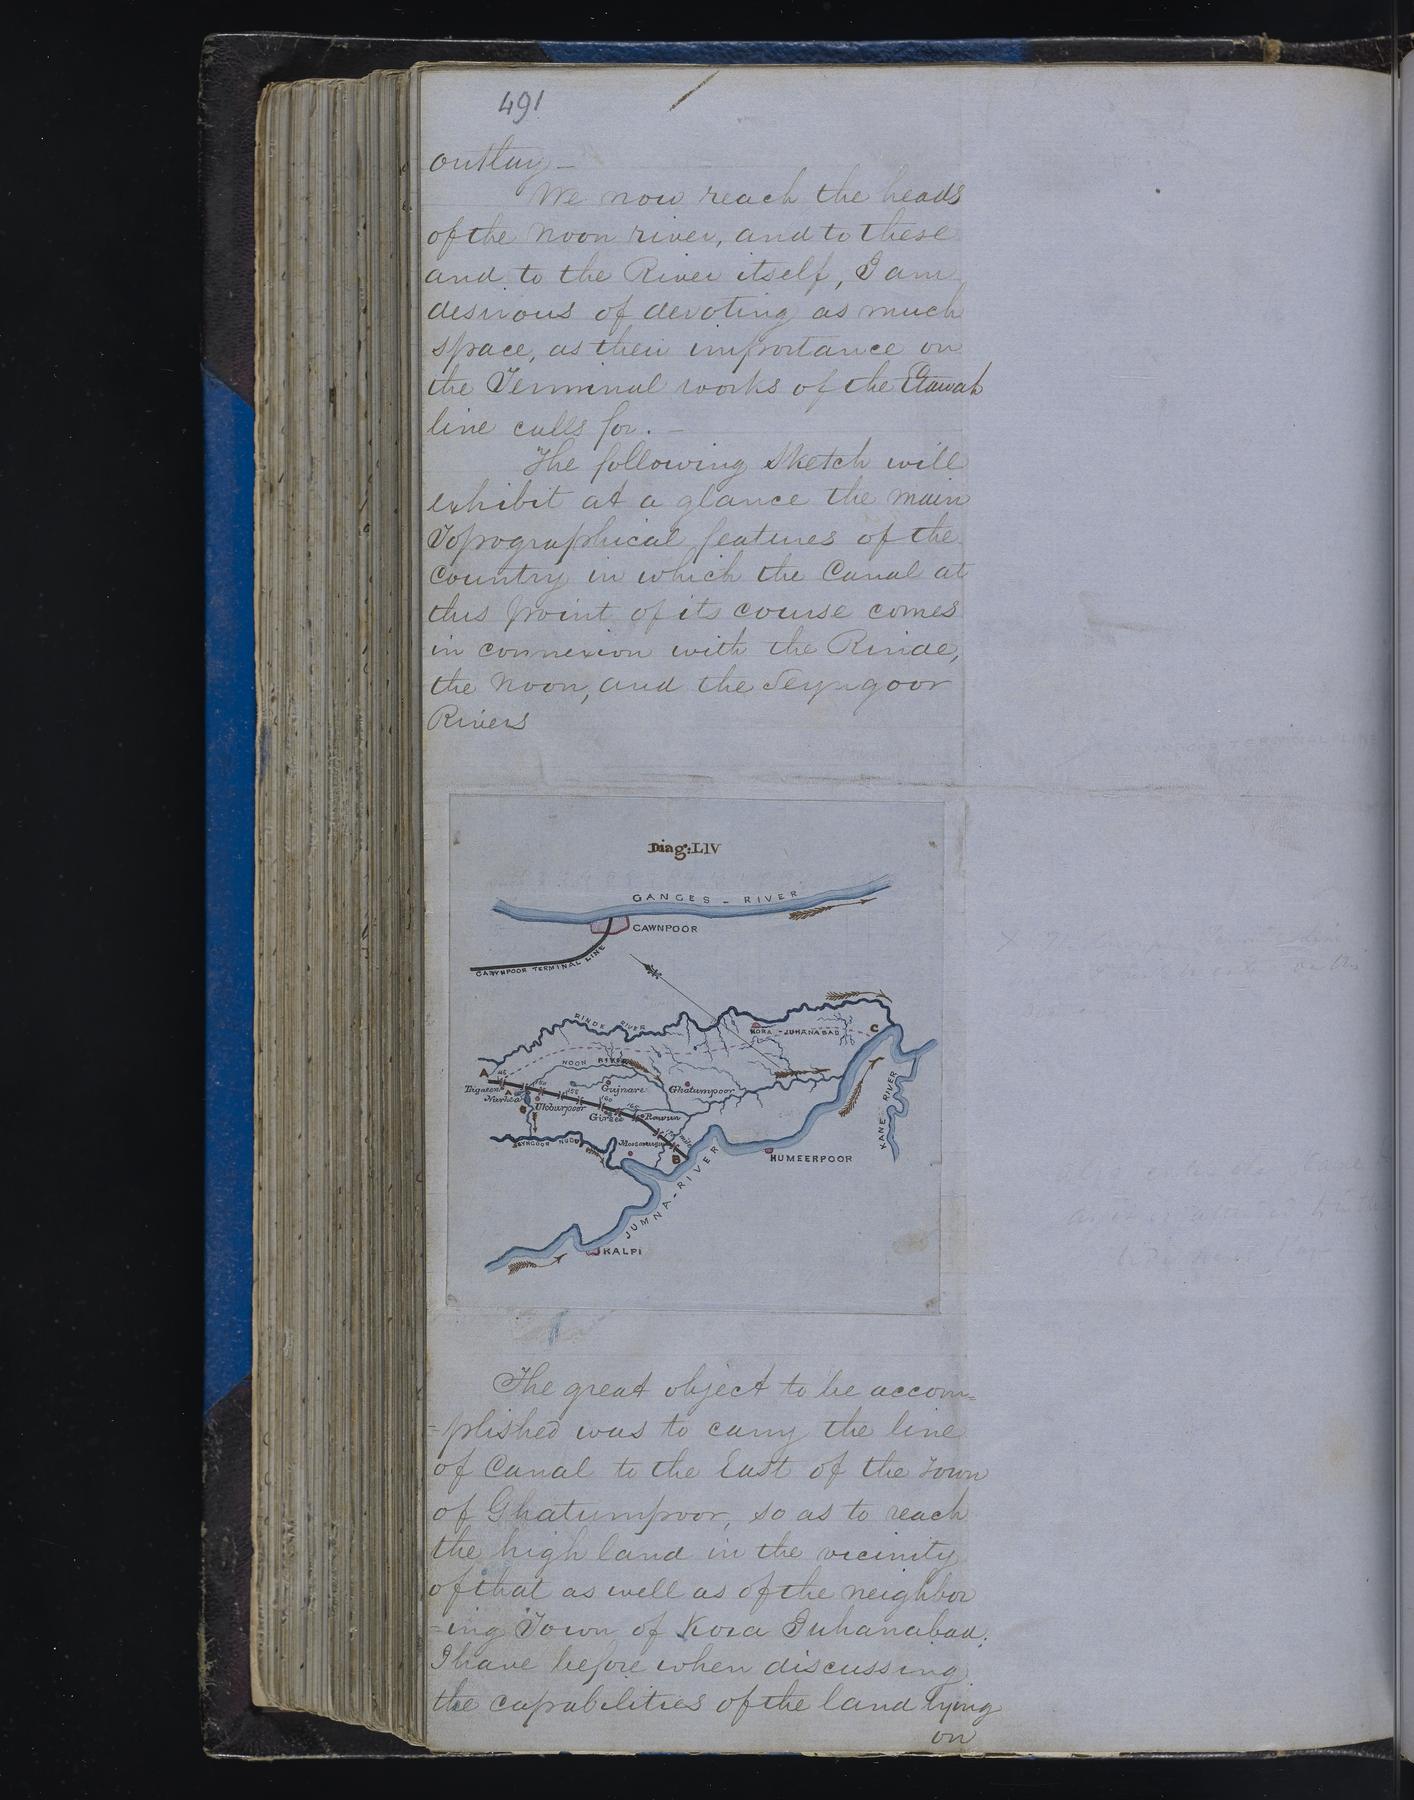 491
outlay –
We now reach the heads
of the Noon river, and to these
and to the River itself, I am
desirous of devoting as much
space, as their importance on
the Terminal works of the Etawah
line calls for. –
The following Sketch will
exhibit at a glance the main
Topographical features of the
Country in which the Canal at
this point of its course comes
in connexion with the Rinde,
the Noon, and the Seyngoor
Rivers
Diag: LIV
GANGES - RIVER
CAWNPOOR
CAWNPOOR TERMINAL LINE
RINDE RIVER
KORA - JUHANABAD
C
NOON RIVER
A
Gujnare
Ghatumpoor
KANE RIVER
Ukburpoor
Rawun
SEYNGOOR NUDI
B
HUMEERPOOR
JUMNA - RIVER
KALPI
The great object to be accom=
=plished was to carry the line
of Canal to the East of the Town
of Ghatumpoor, so as to reach
the high land in the vicinity
of that as well as of the neighbor
=ing Town of Kora Juhanabad.
I have before when discussing
the capabilities of the land lying
on